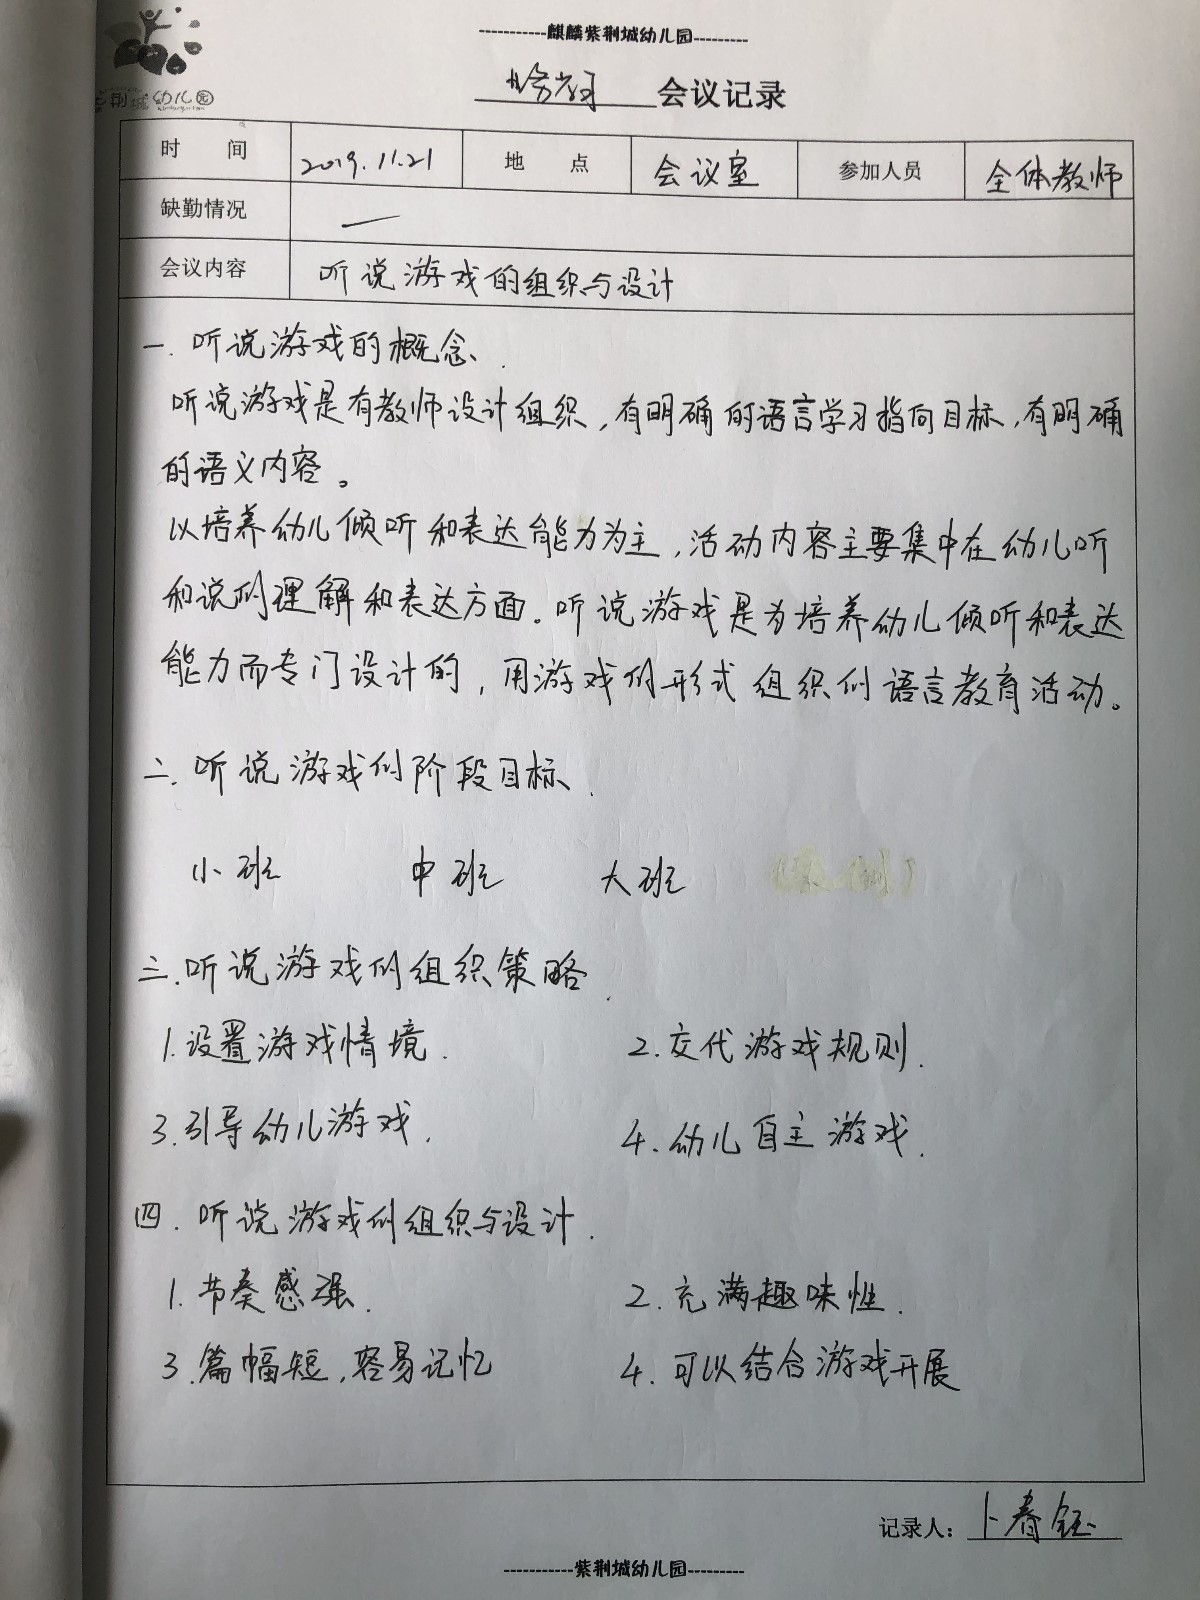 -----------麒麟紫荆城幼儿园---------
紫荆城幼儿园
会议记录
时 间 2019.11.21 地 点 会议室 参加人员 全体教师
缺勤情况 —
会议内容 听说游戏的组织与设计
一.听说游戏的概念.
听说游戏是有教师设计组织,有明确的语言学习指向目标,有明确
的语义内容。
以培养幼儿倾听和表达能力为主,活动内容主要集中在幼儿听
和说的理解和表达方面。听说游戏是为培养幼儿倾听和表达
能力而专门设计的,用游戏的形式组织的语言教育活动。
二.听说游戏的阶段目标.
小班 中班 大班
三.听说游戏的组织策略.
1.设置游戏情境. 2.交代游戏规则.
3.引导幼儿游戏. 4.幼儿自主游戏.
四.听说游戏的组织与设计.
1.节奏感强. 2.充满趣味性.
3.篇幅短,容易记忆 4.可以结合游戏开展
记录人:卜春钰
-----------紫荆城幼儿园---------